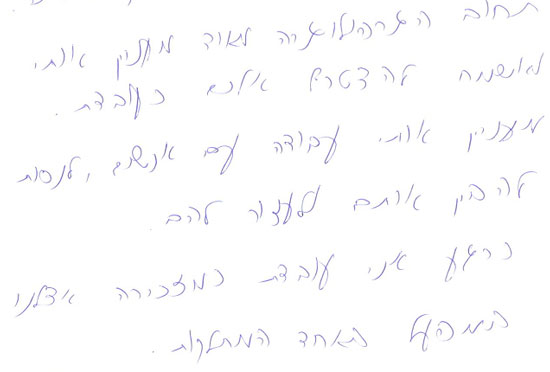 תחום הגרפולוגיה מאוד מעניין אותי
ואשמח להצטרף אליכם כעובדת.
מעניין אותי עבודה עם אנשים, לנסות
להבין אותם ולעזור להם.
כרגע אני עובדת כמזכירה אצלנו
במפעל באחד המחלקות.